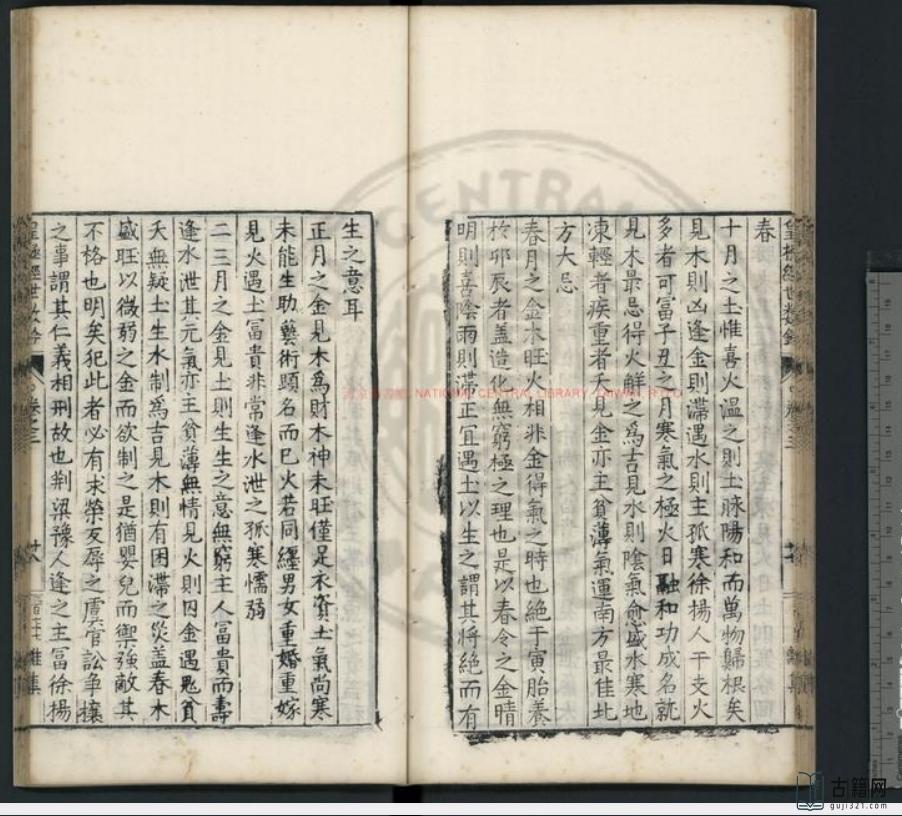 春
十月之土惟喜火溫之則土脉陽和而萬物歸根矣
見木則凶逢金則滯遇水則主孤寒徐揚人干支火
多者可富子丑之月寒氣之極火日融和功成名就
見木最忌得火解之爲吉見水則陰氣愈盛水寒地
凍輕者疾重者夭見金亦主貧薄氣運南方最佳北
方大忌
春月之金木旺火相非金得氣之時也絶于寅胎養
於卯辰者盖造化無窮極之理也是以春令之金晴
明則喜陰雨則滯正宜遇土以生之謂其將絶而有
生之意耳
正月之金見木爲財木神未旺僅足衣資土氣尚寒
未能生助藝術顯名而已火若同纏男女重婚重嫁
見火遇土富貴非常逢水泄之孤寒懦弱
二三月之金見土則生生之意無窮主人富貴而壽
逢水泄其元氣亦主貧薄無情見火則因金遇鬼貧
夭無疑土生水制爲吉見木則有困滯之災盖春木
盛旺以微弱之金而欲制之是猶嬰兒而禦強敵其
不格也明矣犯此者必有求榮反辱之虞官訟争攘
之事謂其仁義相刑故也荆梁豫人逢之主富徐揚
皇極經世數鈐
卷之三
NATIONAL CENTRAL LIBRARY TAIWAN R.O.C
古籍网
guji321.com